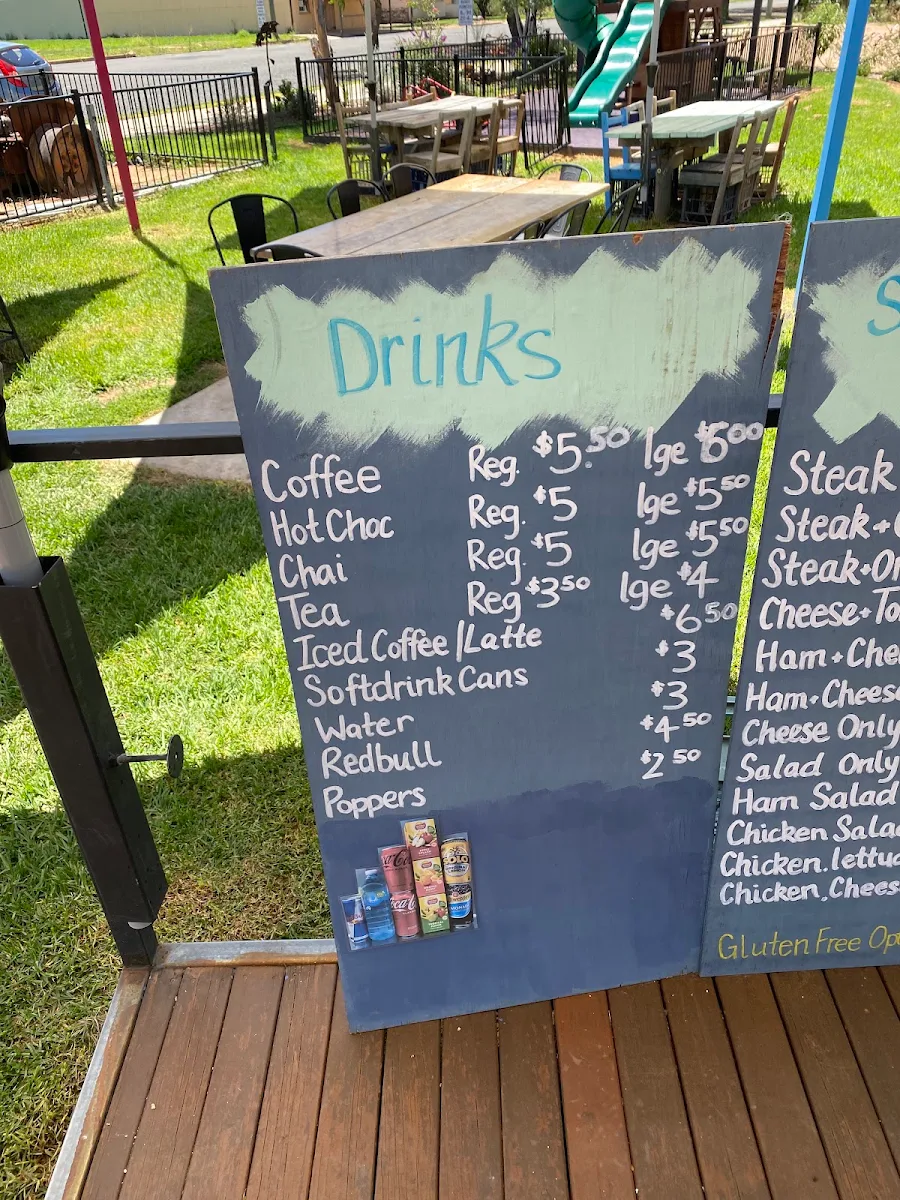 Drinks
Coffee Reg. $5.50 lge $6.00
Hot Choc Reg. $5 lge $5.50
Chai Reg. $5 lge $5.50
Tea Reg $3.50 lge $4
Iced Coffee/Latte $6.50
Softdrink Cans $3
Water $3
Redbull $4.50
Poppers $2.50
S
Steak
Steak+
Steak+On
Cheese+To
Ham+Che
Ham+Cheese
Cheese Only
Salad Only
Ham Salad
Chicken Sala
Chicken.lettuc
Chicken.Chees
Gluten Free Op